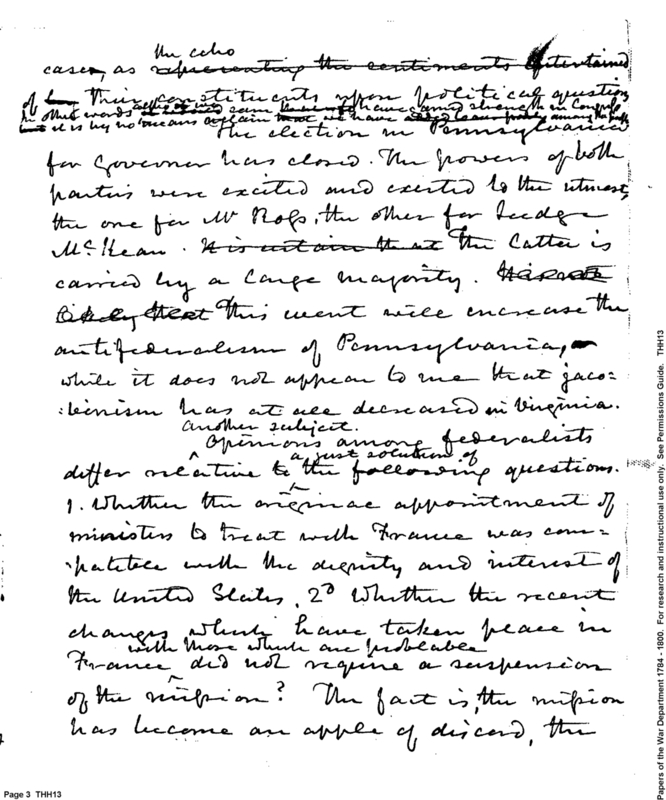 the echo
case, as representing the sentiments entertained
of by their constituents upon political question
in other words have carried strength in Congress
but it is by no means certain that we have added to our party among the
The election in Pennsylvania
for Governor has closed. The powers of both
parties were excited and exerted to the utmost,
the one for Mr Ross, the other for Judge
McKean. It is certain that The latter is
carried by a large majority. It is not
likely that This event will encrease the
antifederalism of Pennsylvania,
while it does not appear to me that jaco=
=binism has at all decreased in Virginia.
another subject.
Opinions among federalists
a just solution of
differ relative to the following questions.
1. Whether the original appointment of
ministers to treat with France was com=
=patible with the dignity and interest of
the United States, 2d Whether the recent
changes which have taken place in
with those which are probable
France did not require a suspension
of the mission? The fact is, the mission
has become an apple of discord, the
Page 3 THH13
Papers of the War Department 1784 - 1800. For research and instructional use only. See Permissions Guide. THH13